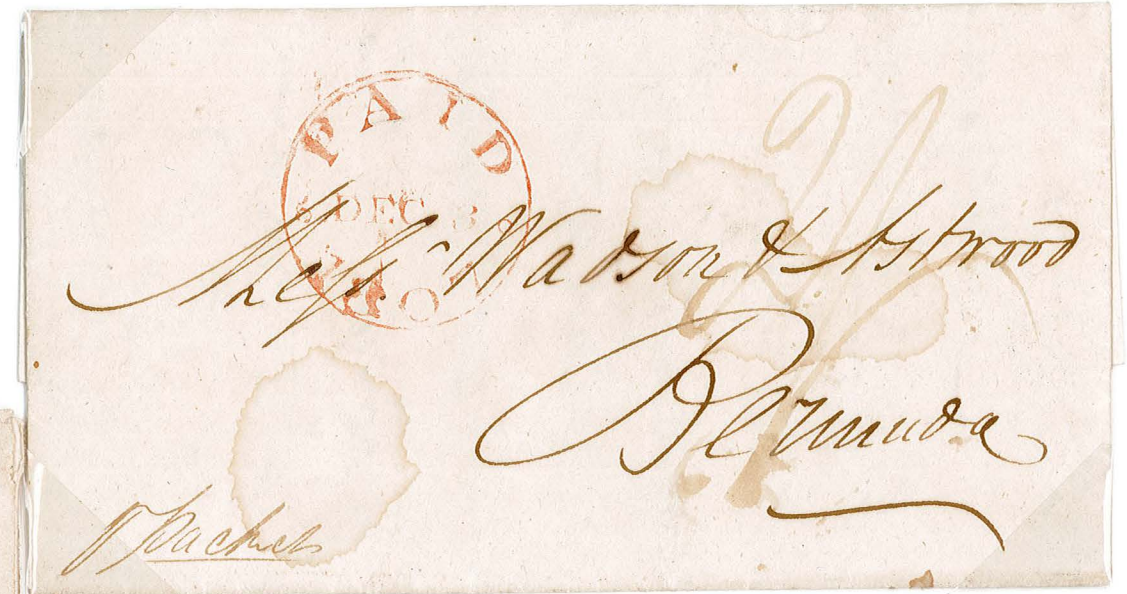 PAID
DEC
Messrs. Wadson & Astwood
Bermuda
p packet